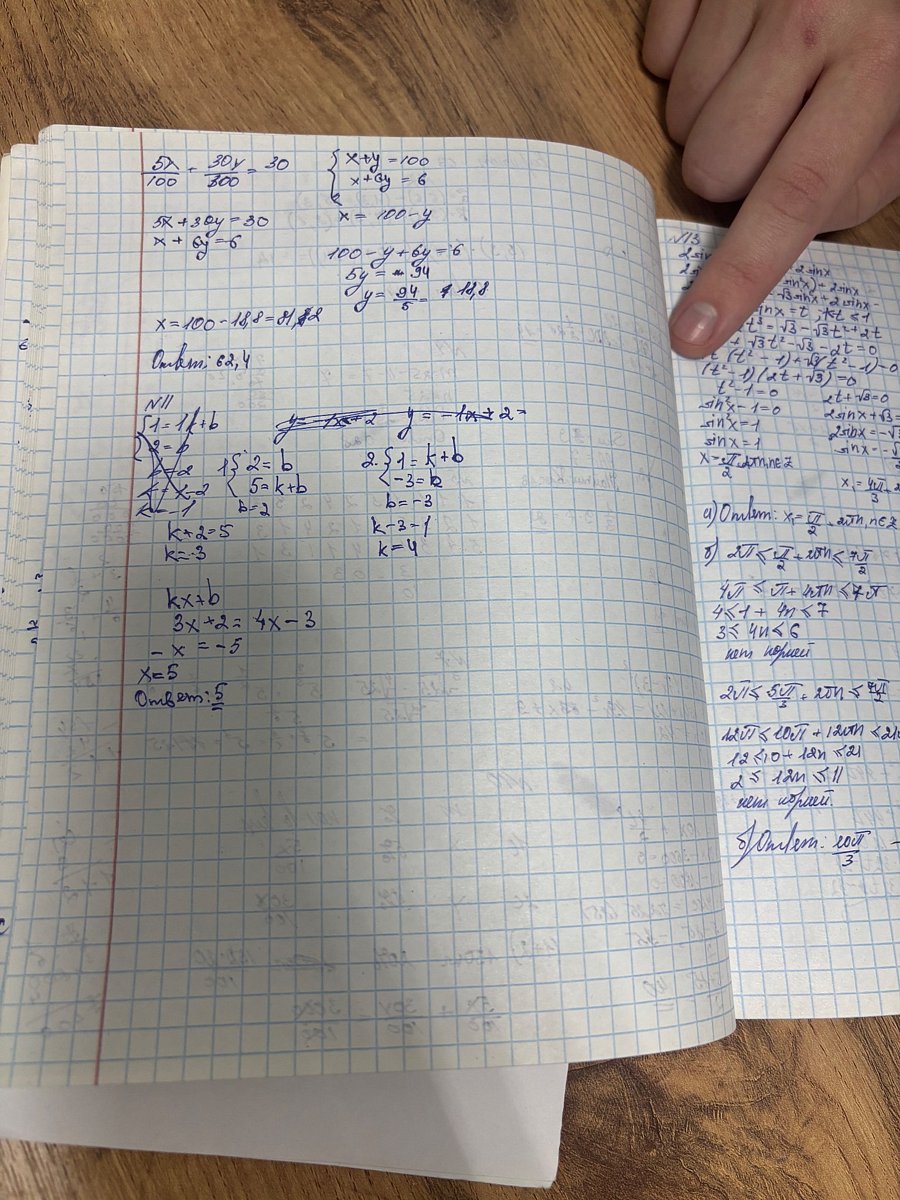 5x/100 + 30y/300 = 30
{ x+y = 100
x+6y = 6
5x+30y = 30
x + 6y = 6
x = 100-y
100-y+6y = 6
5y = 94
y = 94/5 = 18,8
x = 100-18,8 =
Ответ: 62,4
N11
{ 1 = 1k+b
2 = b
b = 2
k = -1
y = -1x+2
y = -1x+2 =
1 { 2 = b
5 = k+b
b = 2
k+2 = 5
k = 3
2. { 1 = k+b
-3 = b
b = -3
k-3-1
k = 4
kx+b
3x+2 = 4x-3
-x = -5
x = 5
Ответ: 5
N13
2sin
2sinx
sin²x) + 2sinx
√3sinx + 2sinx
sinx = t
t³ = √3 - √3t² + 2t
+ √3t² - √3 - 2t = 0
(t² - 1) + √3(t² - 1) = 0
(t² - 1)(2t + √3) = 0
t² - 1 = 0
2t + √3 = 0
sin² - 1 = 0
2sinx + √3
sin²x = 1
2sinx = -√3
sinx = 1
sinx = -√3/2
x = π/2 + 2πn, n∈Z
x₁ = 4π/3 + 2
а) Ответ: x = π/2 + 2πn, n∈Z
б) 2π ≤ π/2 + 2πn ≤ 7π/2
4π ≤ π + 4πn ≤ 7π
4 ≤ 1 + 4n ≤ 7
3 ≤ 4n ≤ 6
нет корней
2π ≤ 5π/3 + 2πn ≤ 7π/2
12π ≤ 10π + 12πn ≤ 21
12 ≤ 10 + 12n ≤ 21
2 ≤ 12n ≤ 11
нет корней.
б) Ответ: 10π/3